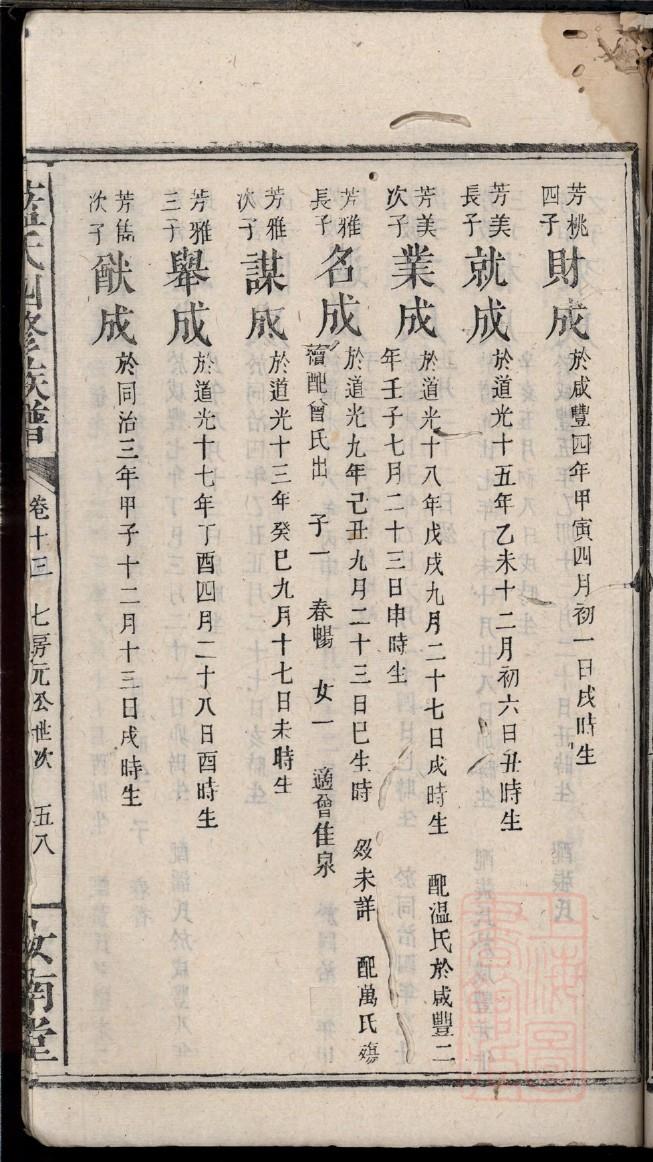 芳桃四子 財成 於咸豐四年甲寅四月初一日戌時生
芳美長子 就成 於道光十五年乙未十二月初六日丑時生
芳美次子 業成 於道光十八年戊戌九月二十七日戌時生 配温氏於咸豐二
年壬子七月二十三日申時生
芳雅長子 名成 於道光九年己丑九月二十三日巳生時 殁未詳 配萬氏殤
續配曾氏出 子一 春暢 女一 適曾佳泉
芳雅次子 謀成 於道光十三年癸巳九月十七日未時生
芳雅三子 舉成 於道光十七年丁酉四月二十八日酉時生
芳儁次子 猷成 於同治三年甲子十二月十三日戌時生
藍氏四修族譜 卷十三 七房元公世次 五八 汝南堂